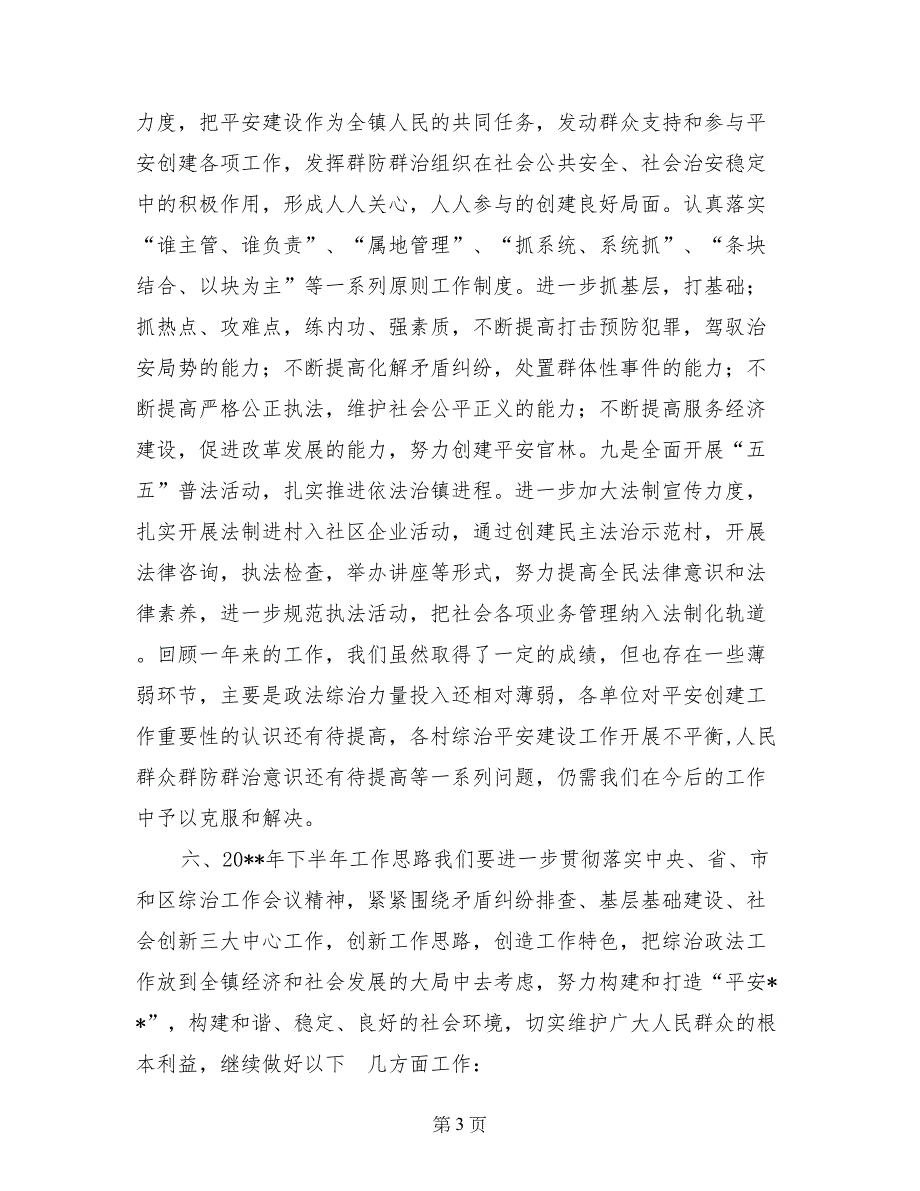 力度，把平安建设作为全镇人民的共同任务，发动群众支持和参与平
安创建各项工作，发挥群防群治组织在社会公共安全、社会治安稳定
中的积极作用，形成人人关心，人人参与的创建良好局面。认真落实
“谁主管、谁负责”、“属地管理”、“抓系统、系统抓”、“条块
结合、以块为主”等一系列原则工作制度。进一步抓基层，打基础；
抓热点、攻难点，练内功、强素质，不断提高打击预防犯罪，驾驭治
安局势的能力；不断提高化解矛盾纠纷，处置群体性事件的能力；不
断提高严格公正执法，维护社会公平正义的能力；不断提高服务经济
建设，促进改革发展的能力，努力创建平安官林。九是全面开展“五
五”普法活动，扎实推进依法治镇进程。进一步加大法制宣传力度，
扎实开展法制进村入社区企业活动，通过创建民主法治示范村，开展
法律咨询，执法检查，举办讲座等形式，努力提高全民法律意识和法
律素养，进一步规范执法活动，把社会各项业务管理纳入法制化轨道
。回顾一年来的工作，我们虽然取得了一定的成绩，但也存在一些薄
弱环节，主要是政法综治力量投入还相对薄弱，各单位对平安创建工
作重要性的认识还有待提高，各村综治平安建设工作开展不平衡,人民
群众群防群治意识还有待提高等一系列问题，仍需我们在今后的工作
中予以克服和解决。
六、20**年下半年工作思路我们要进一步贯彻落实中央、省、市
和区综治工作会议精神，紧紧围绕矛盾纠纷排查、基层基础建设、社
会创新三大中心工作，创新工作思路，创造工作特色，把综治政法工
作放到全镇经济和社会发展的大局中去考虑，努力构建和打造“平安*
*”，构建和谐、稳定、良好的社会环境，切实维护广大人民群众的根
本利益，继续做好以下　几方面工作：
第 3 页